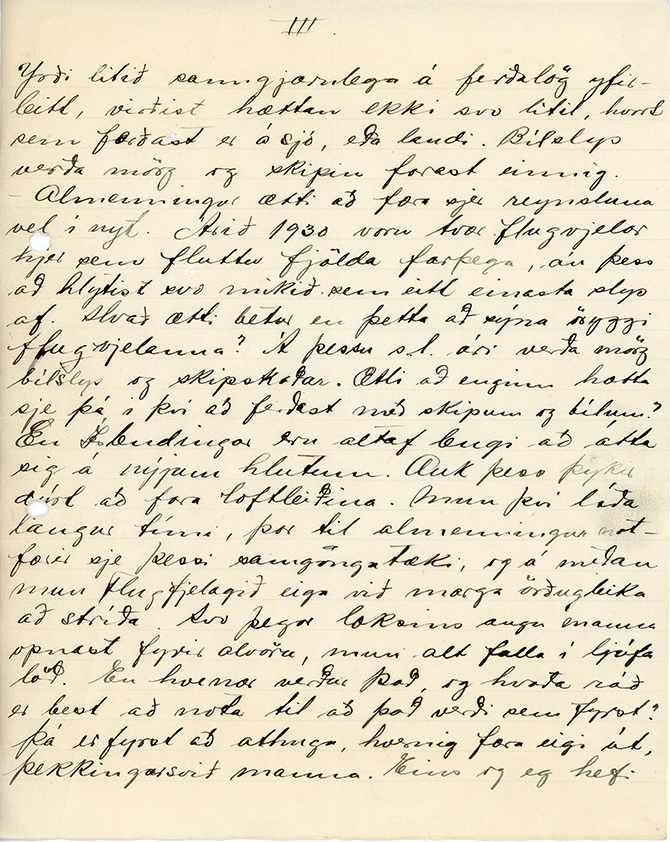 III.
Yrði litið sanngjarnlega á ferðalög yfir-
leitt, virðist hættan ekki svo lítil, hvort
sem ferðast er á sjó, eða landi. Bílslys
verða mörg og skipin farast einnig.
- Almenningur ætti að færa sjer reynsluna
vel í nyt. Árið 1930 voru tvær flugvjelar
hjer sem fluttu fjölda farþega, án þess
að hlytist svo mikið sem eitt einasta slys
af. Hvað ætti betur en þetta að sýna öryggi
flugvjelanna? Á þessu s.l. ári verða mörg
bílslys og skipskaðar. Ætli að enginn hætta
sje þá í því að ferðast með skipum og bílum?
En Íslendingar eru altaf lengi að átta
sig á nýjum hlutum. Auk þess þykir
dýrt að fara loftleiðina. Mun því líða
langur tími, þar til almenningur not-
færir sje þessi samgöngutæki, og á meðan
mun Flugfjelagið eiga við marga örðugleika
að stríða. Svo þegar loksins augu manna
opnast fyrir alvöru, mun alt falla í ljúfa
löð. En hvenær verður það, og hvaða ráð
er best að nota til að það verði sem fyrst?
Þá er fyrst að athuga, hvernig færa eigi út,
þekkingarsvið manna. Eins og eg hefi